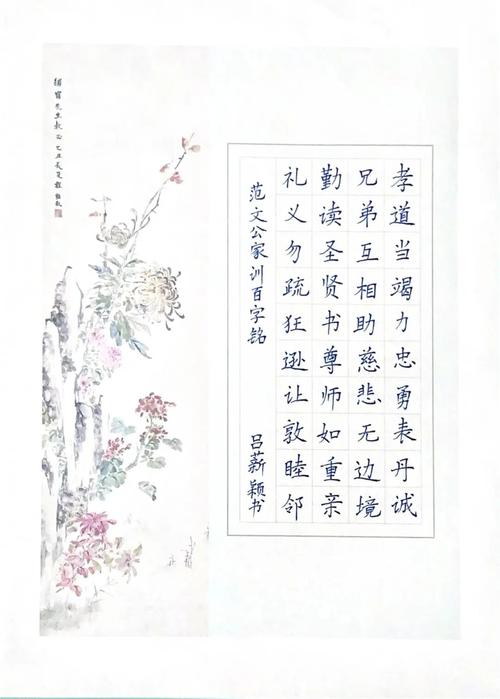 孝道当竭力忠勇表丹诚
兄弟互相助慈悲无边境
勤读圣贤书尊师如重亲
礼义勿疏狂逊让敦睦邻
范文公家训百字铭
吕薪颖书
先生教正乙丑长夏